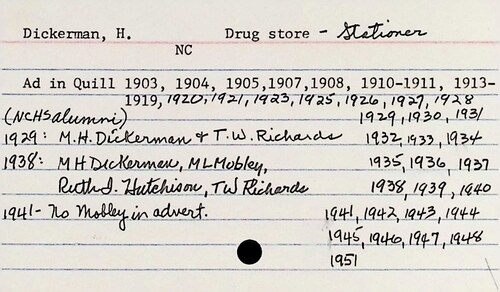 Dickerman, H. Drug store - Stationer
NC
Ad in Quill 1903, 1904, 1905,1907,1908, 1910-1911, 1913-
1919, 1920, 1921, 1923, 1925, 1926, 1927, 1928
(NCHS alumni) 1929, 1930, 1931
1929: M.H. Dickerman & T.W. Richards 1932, 1933, 1934
1938: M H Dickerman, M L Mobley, 1935, 1936, 1937
Ruth I. Hutchison, T W Richards 1938, 1939, 1940
1941- No Mobley in advert. 1941, 1942, 1943, 1944
1945, 1946, 1947, 1948
1951